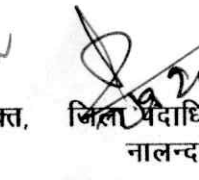 क्त, जिला पदाधि
नालन्द